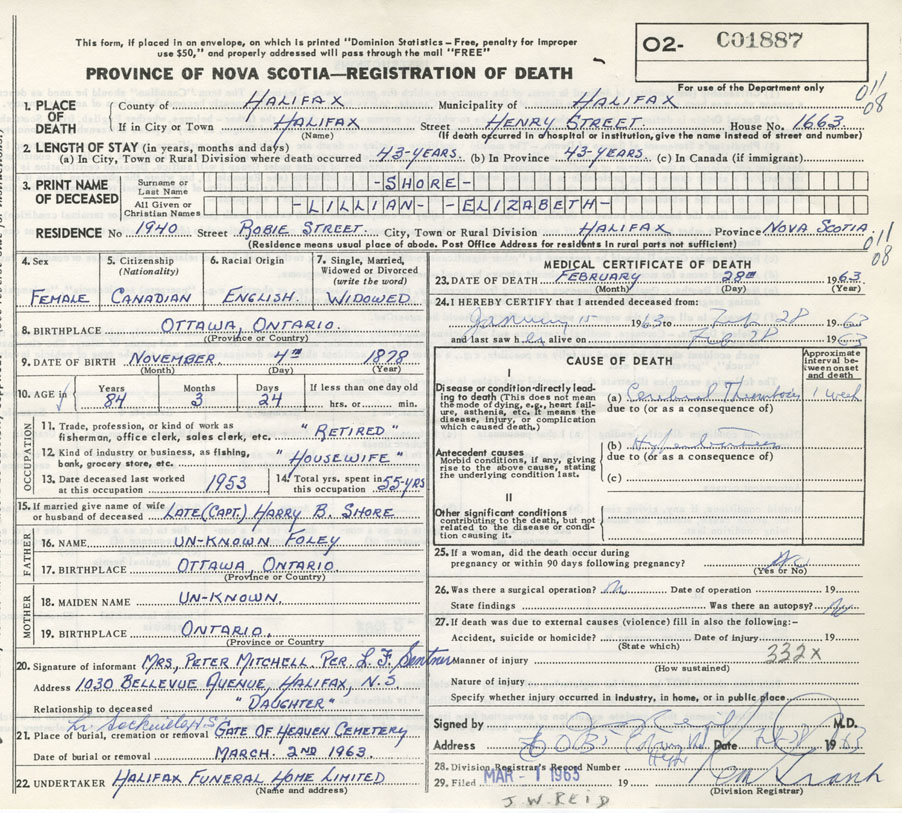 This form, if placed in an envelope, on which is printed "Dominion Statistics – Free, penalty for improper
use $50," and properly addressed will pass through the mail "FREE"
O2- C01887
PROVINCE OF NOVA SCOTIA—REGISTRATION OF DEATH
For use of the Department only
011
08
1. PLACE OF DEATH
County of HALIFAX Municipality of HALIFAX
If in City or Town HALIFAX Street HENRY STREET. House No. 1663.
(Name) (If death occurred in a hospital or institution, give the name instead of street and number)
2. LENGTH OF STAY (in years, months and days)
(a) In City, Town or Rural Division where death occurred 43-YEARS. (b) In Province 43-YEARS. (c) In Canada (if immigrant)
3. PRINT NAME OF DECEASED
Surname or Last Name -SHORE-
All Given or Christian Names -LILLIAN- -ELIZABETH-
RESIDENCE No 1940 Street ROBIE STREET. City, Town or Rural Division HALIFAX Province NOVA SCOTIA
(Residence means usual place of abode. Post Office Address for residents in rural parts not sufficient)
011
08
4. Sex FEMALE
5. Citizenship (Nationality) CANADIAN
6. Racial Origin ENGLISH.
7. Single, Married, Widowed or Divorced (write the word) WIDOWED
8. BIRTHPLACE OTTAWA, ONTARIO.
(Province or Country)
9. DATE OF BIRTH NOVEMBER 4TH 1878
(Month) (Day) (Year)
10. AGE in Years 84 Months 3 Days 24 If less than one day old hrs. or min.
OCCUPATION
11. Trade, profession or kind of work as fisherman, office clerk, sales clerk, etc. "RETIRED"
12. Kind of industry or business, as fishing, bank, grocery store, etc. "HOUSEWIFE"
13. Date deceased last worked at this occupation 1953
14. Total yrs. spent in this occupation 55-YRS
15. If married give name of wife or husband of deceased LATE (CAPT.) HARRY B. SHORE
FATHER
16. NAME UN-KNOWN FOLEY
17. BIRTHPLACE OTTAWA, ONTARIO.
(Province or Country)
MOTHER
18. MAIDEN NAME UN-KNOWN.
19. BIRTHPLACE ONTARIO.
(Province or Country
20. Signature of informant MRS. PETER MITCHELL. PER. L. F.
Address 1030 BELLEVUE AVENUE, HALIFAX, N.S
Relationship to deceased "DAUGHTER"
Lr. Sackville N.S
21. Place of burial, cremation or removal GATE OF HEAVEN CEMETERY
Date of burial or removal MARCH. 2ND 1963.
22. UNDERTAKER HALIFAX FUNERAL HOME LIMITED
(Name and address)
MEDICAL CERTIFICATE OF DEATH
23. DATE OF DEATH FEBRUARY 28TH 1963
(Month) (Day) (Year)
24. I HEREBY CERTIFY that I attended deceased from:
January 15 1963 to Feb 28 1963
and last saw her alive on Feb 28 1963
CAUSE OF DEATH
Approximate interval between onset and death
I
Disease or condition directly leading to death (This does not mean the mode of dying, e.g., heart failure, asthenia, etc. It means the disease, injury, or complication which caused death.)
(a) Cerebral Thrombosis 1 week
due to (or as a consequence of)
Antecedent causes
Morbid conditions, if any, giving rise to the above cause, stating the underlying condition last.
(b) Hypertension
due to (or as a consequence of)
(c)
II
Other significant conditions contributing to the death, but not related to the disease or condition causing it.
25. If a woman, did the death occur during pregnancy or within 90 days following pregnancy? No
(Yes or No)
26. Was there a surgical operation? Date of operation 19
State findings Was there an autopsy? No
27. If death was due to external causes (violence) fill in also the following:–
Accident, suicide or homicide? Date of injury 19
(State which)
332x
Manner of injury
(How sustained)
Nature of injury
Specify whether injury occurred in Industry, in home, or in public place
Signed by M.D.
Address Date 19 63
28. Division Registrar's Record Number
29. Filed MAR - 1 1963 19
(Division Registrar)
J.W. REID